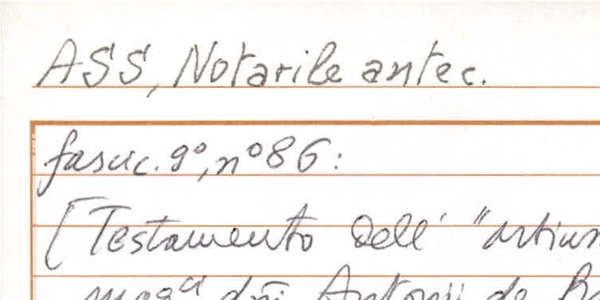 ASS, Notarile antec.
fascic. 9°, n° 86:
[Testamento dell' "artium
mag.ci dñi Antonii de B